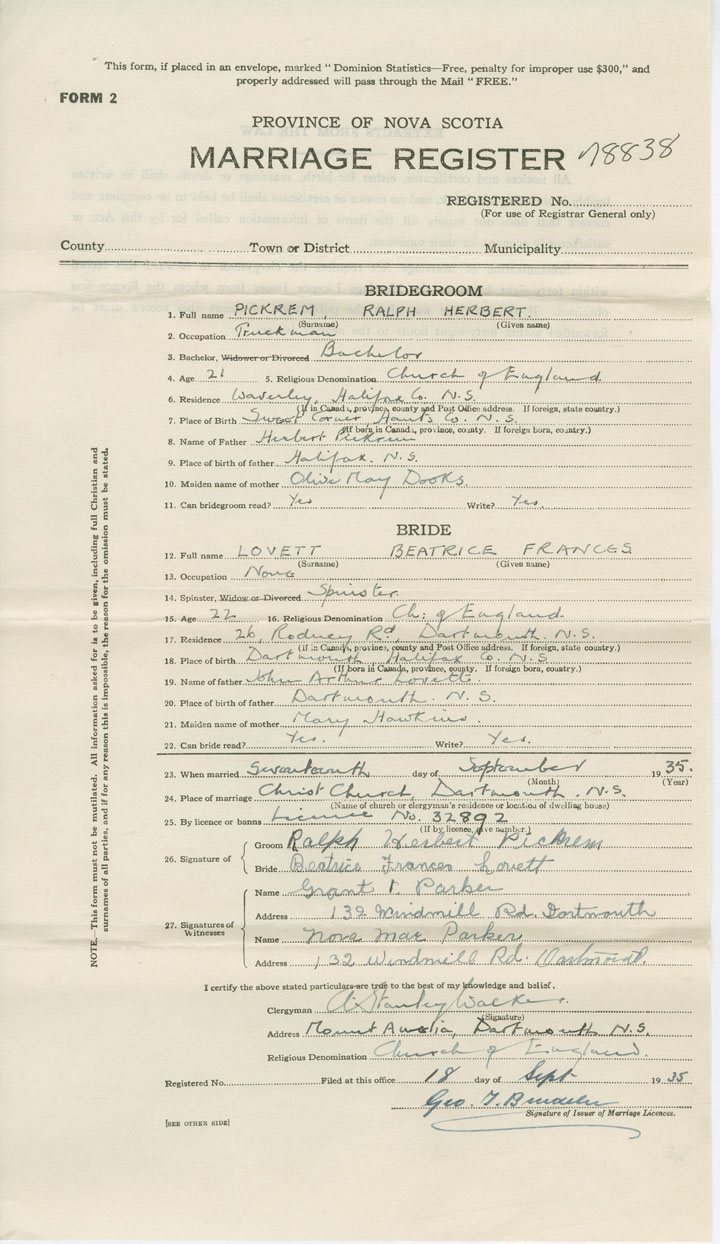 This form, if placed in an envelope, marked "Dominion Statistics—Free, penalty for improper use $300," and
properly addressed will pass through the Mail "FREE."
FORM 2
PROVINCE OF NOVA SCOTIA
MARRIAGE REGISTER 78838
REGISTERED No.
(For use of Registrar General only)
County Town or District Municipality
BRIDEGROOM
1. Full name PICKREM, RALPH HERBERT.
(Surname) (Given name)
2. Occupation Truckman
3. Bachelor, Widower or Divorced Bachelor
4. Age 21 5. Religious Denomination Church of England
6. Residence Waverley, Halifax Co. N.S.
(If in Canada, province, county and Post Office address. If foreign, state country.)
7. Place of Birth Sweet Corner Hants Co. N.S.
(If born in Canada, province, county. If foreign born, country.)
8. Name of Father Herbert Pickrem
9. Place of birth of father Halifax. N.S.
10. Maiden name of mother Olive May Dooks.
11. Can bridegroom read? Yes Write? Yes.
BRIDE
12. Full name LOVETT BEATRICE FRANCES
(Surname) (Given name)
13. Occupation None
14. Spinster, Widow or Divorced Spinster.
15. Age 22 16. Religious Denomination Ch: of England.
17. Residence 26, Rodney Rd, Dartmouth. N.S.
(If in Canada, province, county and Post Office address. If foreign, state country.)
18. Place of birth Dartmouth Halifax Co. N.S.
(If born in Canada, province, county. If foreign born, country.)
19. Name of father John Arthur Lovett.
20. Place of birth of father Dartmouth. N.S.
21. Maiden name of mother Mary Hawkins.
22. Can bride read? Yes. Write? Yes.
23. When married Seventeenth day of September 1935.
(Month) (Year)
24. Place of marriage Christ Church, Dartmouth. N.S.
(Name of church or clergyman's residence or location of dwelling house)
25. By licence or banns Licence No. 32892
(If by licence, give number.)
26. Signature of
Groom Ralph Herbert Pickrem
Bride Beatrice Frances Lovett
27. Signatures of Witnesses
Name Grant Parker
Address 132 Windmill Rd. Dartmouth
Name Nova Mae Parker
Address 132 Windmill Rd. Dartmouth.
I certify the above stated particulars are true to the best of my knowledge and belief.
Clergyman A. Stanley Walker.
(Signature)
Address Mount Amelia, Dartmouth N.S.
Religious Denomination Church of England.
Registered No. Filed at this office 18 day of Sept 1935
Geo. T.
Signature of Issuer of Marriage Licences.
[SEE OTHER SIDE]
NOTE.—This form must not be mutilated. All information asked for is to be given, including full Christian and
surnames of all parties, and if for any reason this is impossible, the reason for the omission must be stated.